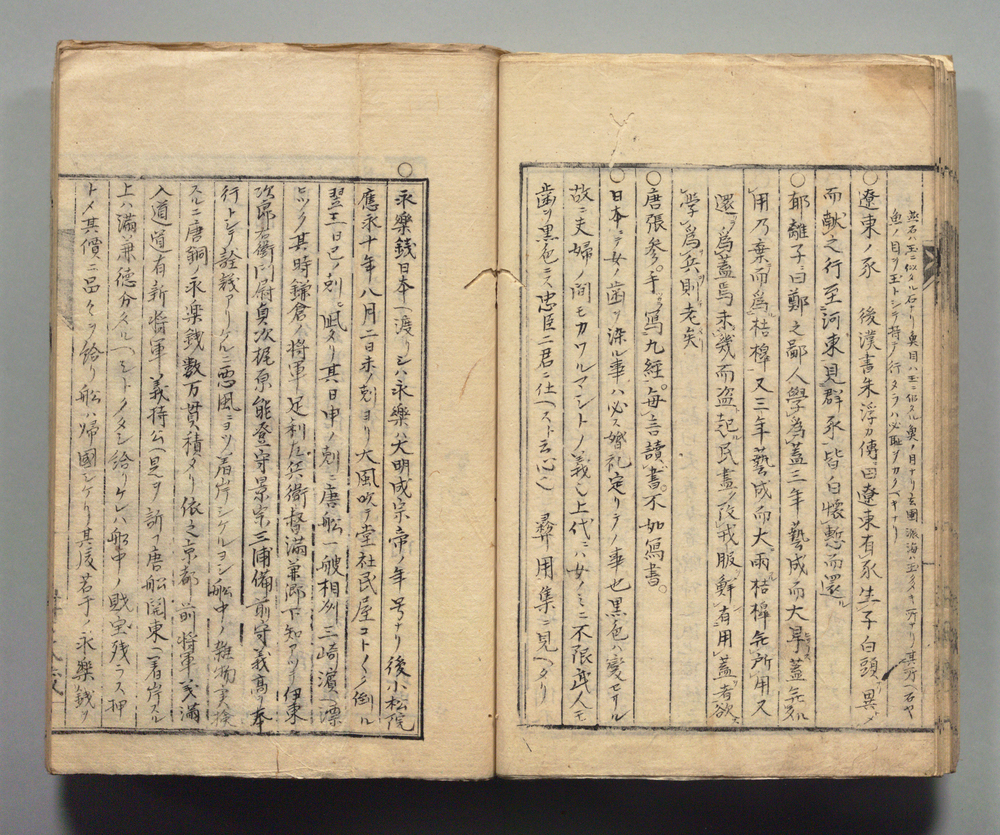 燕石ハ玉ニ似タル石ナリ魚目ハ玉ニ似タル魚ノ目ナリ
魚ノ目ヲ玉トシテ持ノ行タラハ必恥ヲカクヘキナリ
○遼東ノ豕 後漢書朱浮カ傳ニ曰遼東有豕生子白頭異ノ
而献之行至河東見群豕皆白懐慙而還ル
○郁離子ニ曰鄭之鄙人學為蓋三年藝成而大旱蓋無所
用乃棄而為桔槹又三年藝成而大雨桔槹無所用又
還テ為蓋焉未幾而盗起民盡ク改戎服鮮有用蓋者欲
学為兵則老矣
○唐張参手ヲ寫九經毎言讀書不如寫書
○日本ニテ女ノ歯ヲ染ル事ハ必ス婚礼定リテノ事也黒色ハ変セサル
故ニ夫婦ノ間モカワルマシトノ義也上代ニハ女ノミニ不限武人モ
歯ヲ黒色ニス忠臣二君ニ仕ヘスト云心也 彛用集ニ見ヘタリ
○永樂銭日本ヘ渡リシハ永樂ハ大明成宗帝ノ年号ナリ後小松院
應永十年八月二日未ノ刻ヨリ大風吹テ堂社民屋コトく倒ル
翌三日巳ノ刻ニ風タリ其日申ノ刻ニ唐船一艘相列三崎濱ヘ漂
其時鎌倉ノ将軍足利左兵衛督満兼郷下知アツテ伊東
次郎右衛門尉貞次梶原能登守景宗三浦備前守義高ヲ奉
行トシテ詮義アリケルニ悪風ニヨツテ着岸シケルヨシ船中ノ雑物
スルニ唐銅ノ永楽銭数万貫積タリ依之京都ノ前将軍義満
入道道有新将軍義持公ヘ是ヲ訴フ唐船関東ヘ着岸スル
上ハ満兼徳分タルヘシトノタシ給リケレハ船中ノ財宝残ラス押
トメ其價ニ品々ヲ給リ船ハ帰國シケリ其後若干ノ永樂銭ヲ